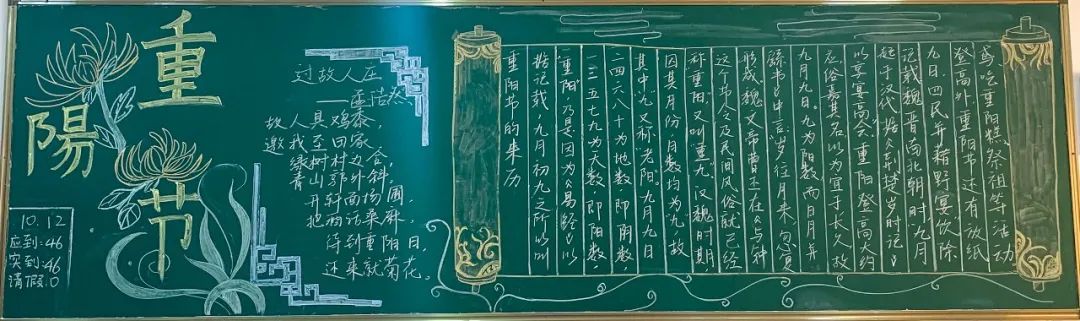 重
陽
节
10.12
应到:46
实到:46
请假:0
过故人庄
——孟浩然
故人具鸡黍，
邀我至田家。
绿树村边合，
青山郭外斜。
开轩面场圃，
把酒话桑麻。
待到重阳日，
还来就菊花。
重阳节的来历
据记载，九月初九之所以叫
“重阳”，是因为《易经》以
一三五七九为大数，即阳数，
二四六八十为地数即阴数，
其中“九”又称“老阳”。九月九日
因其月份、月数均为“九”，故
称重阳，又叫“重九”。汉魏时期
这个节令及民间风俗就已经
形成，魏文帝曹丕在《与钟
繇书》中言“岁往月来，忽复
九月九日。九为阳数，而日月并
应，俗嘉其名，以为宜于长久，故
以宴享高会”。重阳登高大约
起于汉代。据《荆楚岁时记》
记载，魏晋南北朝时“九月
九日，四民并藉野宴饮”。除
登高外，重阳节还有放纸
鸢、吃重阳糕、祭祖等活动